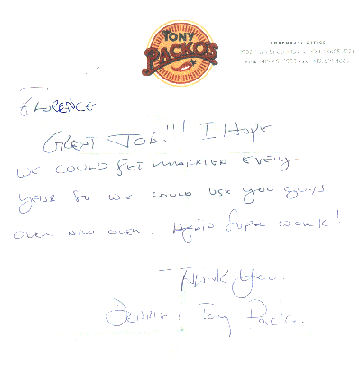 TONY
PACKO'S
FLORENCE
GREAT JOB!!! I HOPE
WE COULD GET MARRIED EVERY
YEAR SO WE COULD USE YOU GUYS
OVER AND OVER. AGAIN SUPER WORK!
THANK YOU.
BONNIE & TONY PACKO